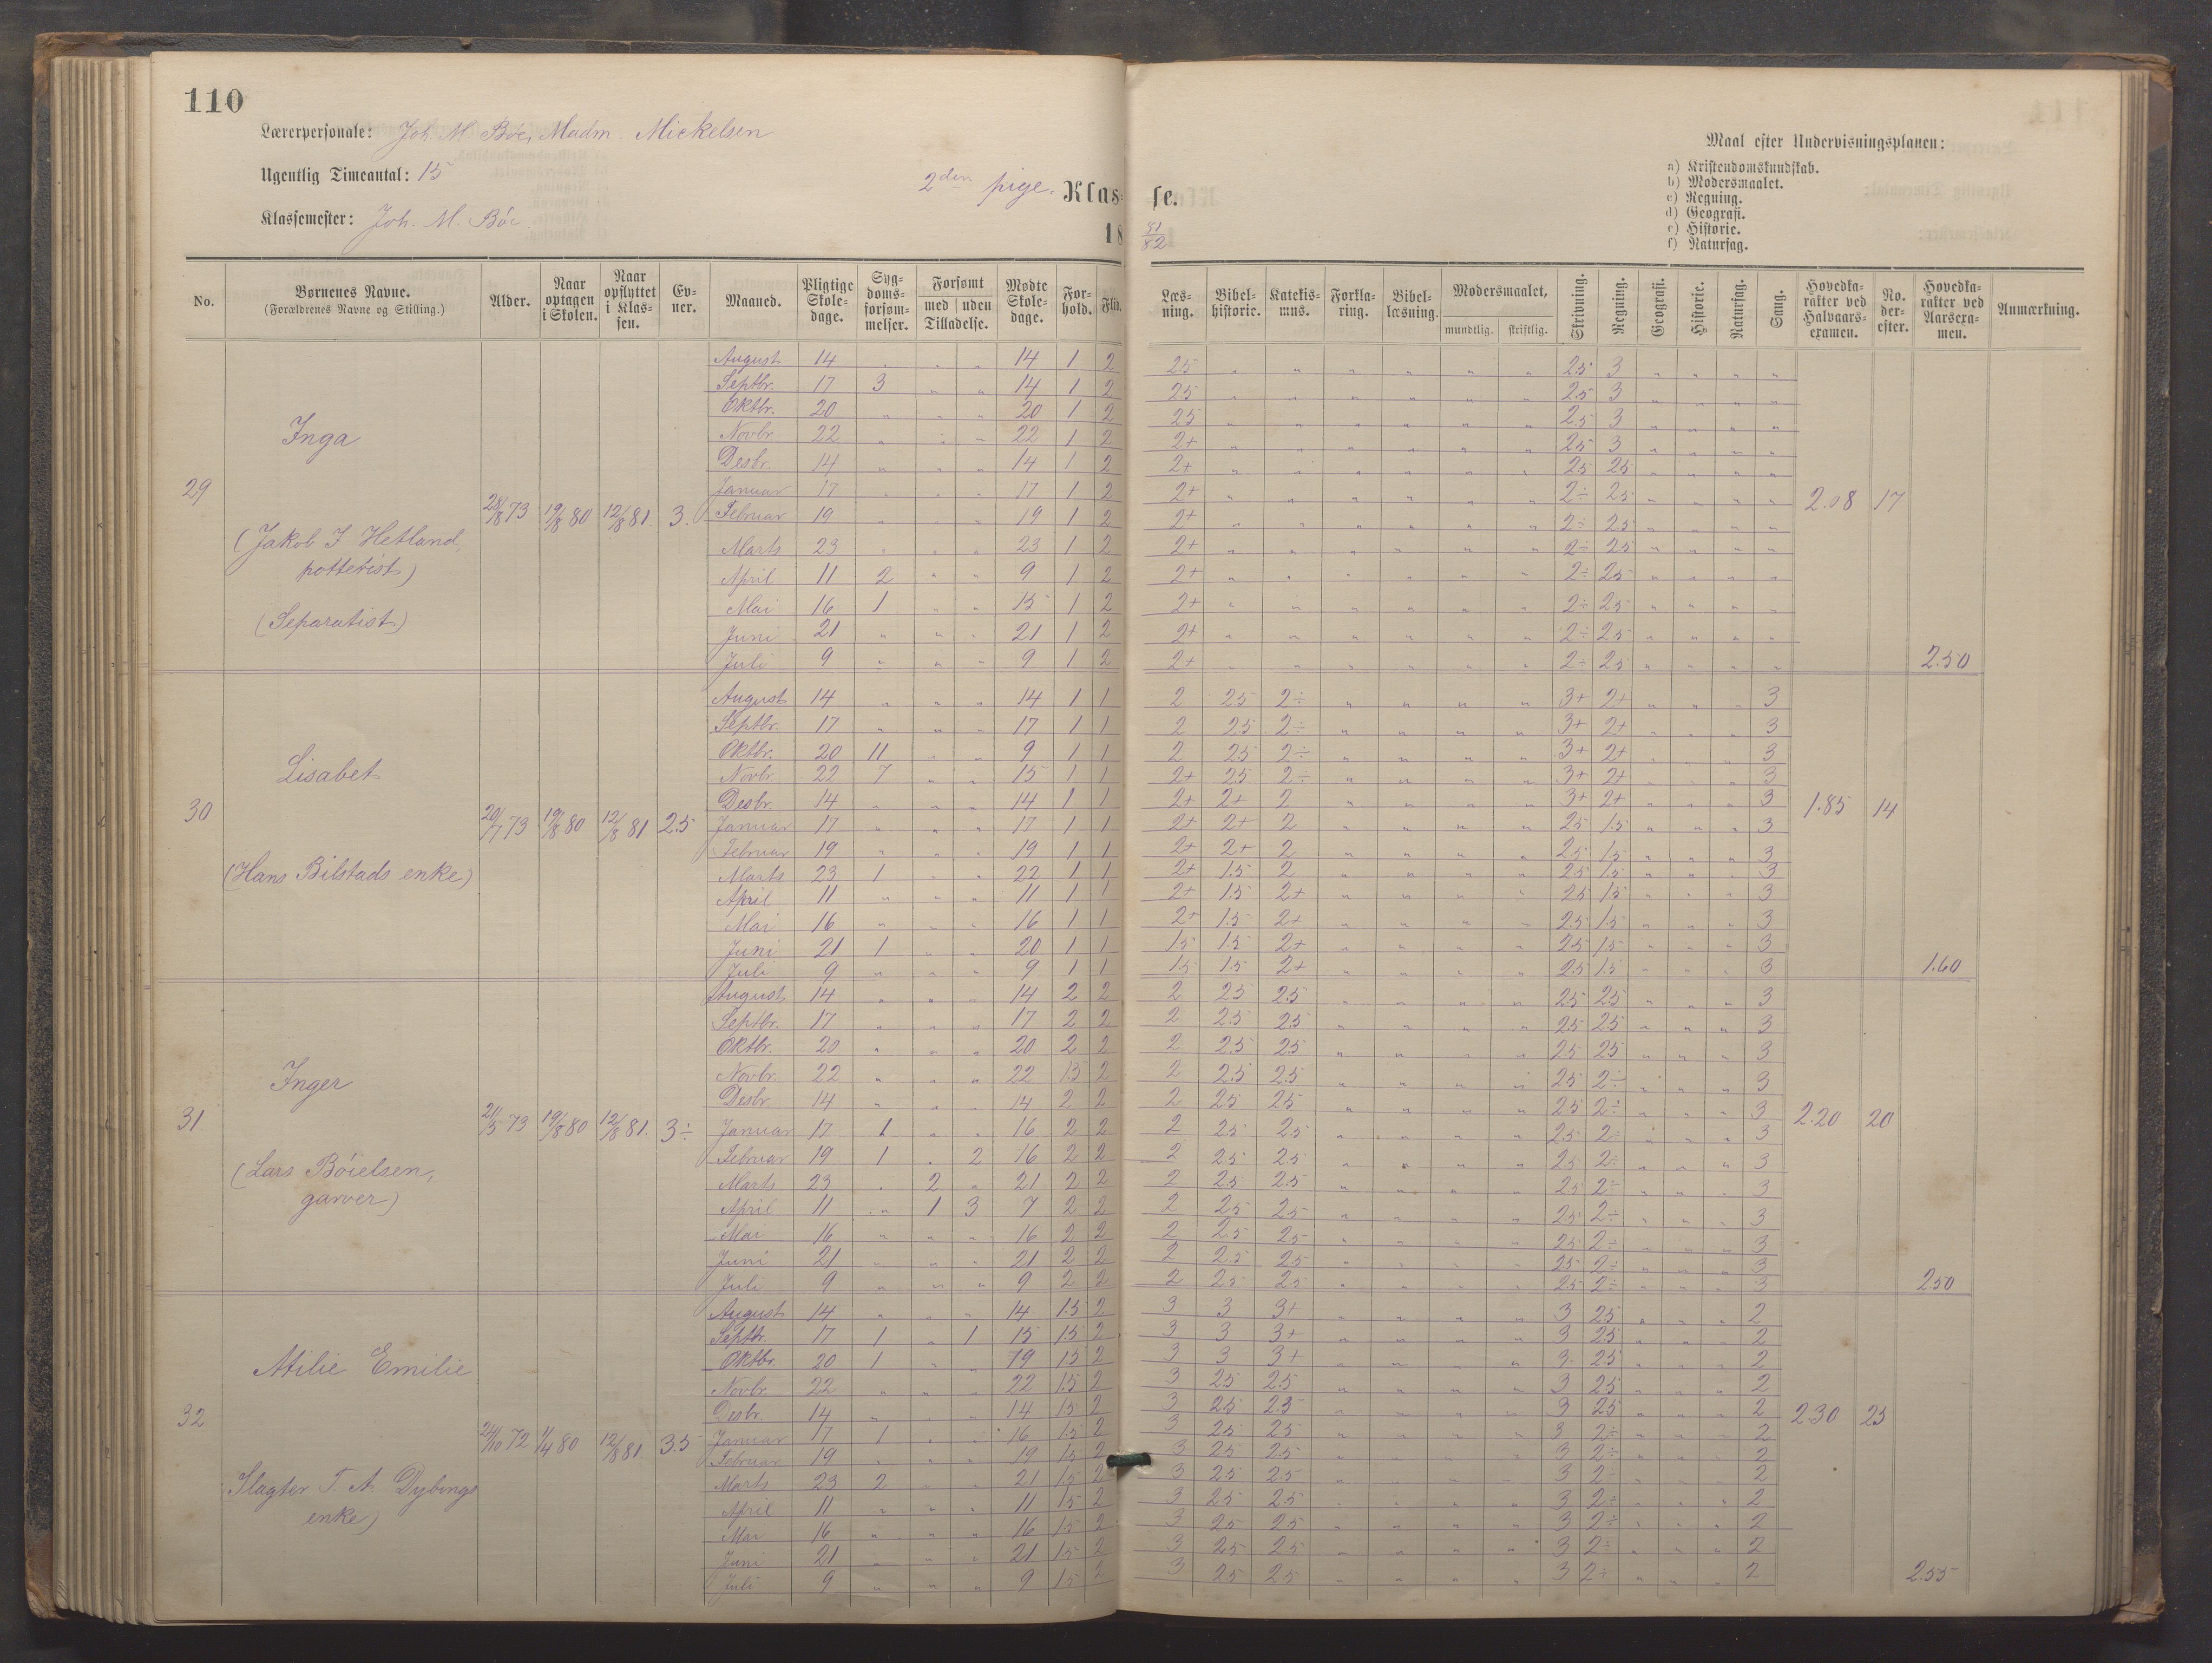 110
Lærerpersonale: Joh. M. Böe, Madm. Mickelsen
Ugentlig Timeantal: 15
Klassemester: Joh. M. Böe
2den pige. Klas= se.
18 81/82
Maal efter Undervisningsplanen:
a) Kristendomskundskab.
b) Modersmaalet.
c) Regning.
d) Geografi.
e) Historie.
f) Naturfag.
No. | Børnenes Navne. (Forældrenes Navne og Stilling.) | Alder. | Naar optagen i Skolen. | Naar opflyttet i Klassen. | Evner. | Maaned. | Pligtige Skoledage. | Sygdomsforsømmelser. | Forsømt med uden Tilladelse. | Mødte Skoledage. | Forhold. | Flid. | Læsning. | Bibelhistorie. | Katekismus. | Forklaring. | Bibellæsning. | Modersmaalet, mundtlig. skriftlig. | Skrivning. | Regning. | Geografi. | Historie. | Naturfag. | Sang. | Hovedkarakter ved Halvaarsexamen. | No. derefter. | Hovedkarakter ved Aarsexamen. | Anmærkning.
29 Inga (Jakob I Hetland, pottetist) (Separatist) 28/8 73 19/8 80 12/8 81. 3. 2.08 17 2.50
August 14 " " " 14 1 2 25 " " " " " " 2.5 3 " " " "
Septbr. 17 3 " " 14 1 2 25 " " " " " " 2.5 3 " " " "
Oktbr. 20 " " " 20 1 2 25 " " " " " " 2.5 3 " " " "
Novbr 22 " " " 22 1 2 2+ " " " " " " 25 3 " " " "
Desbr. 14 " " " 14 1 2 2+ " " " " " " 25 25 " " " "
Januar 17 " " " 17 1 2 2+ " " " " " " 2÷ 25 " " " "
Februar 19 " " " 19 1 2 2+ " " " " " " 2÷ 25 " " " "
Marts 23 " " " 23 1 2 2+ " " " " " " 2÷ 25 " " " "
April 11 2 " " 9 1 2 2+ " " " " " " 2÷ 25 " " " "
Mai 16 1 " " 15 1 2 2+ " " " " " " 2÷ 25 " " " "
Juni 21 " " " 21 1 2 2+ " " " " " " 2÷ 25 " " " "
Juli 9 " " " 9 1 2 2+ " " " " " " 2÷ 25 " " " "
30 Lisabet (Hans Bilstads enke) 20/7 73 19/8 80 12/8 81 2.5 1.85 14 1.60
August 14 " " " 14 1 1 2 25 2÷ " " " " 3+ 2+ " " " 3
Septbr. 17 " " " 17 1 1 2 25 2÷ " " " " 3+ 2+ " " " 3
Oktbr. 20 11 " " 9 1 1 2 25 2÷ " " " " 3+ 2+ " " " 3
Novbr. 22 7 " " 15 1 1 2+ 25 2÷ " " " " 3+ 2+ " " " 3
Desbr. 14 " " " 14 1 1 2+ 2+ 2 " " " " 3+ 2+ " " " 3
Januar 17 " " " 17 1 1 2+ 2+ 2 " " " " 25 1.5 " " " 3
Februar 19 " " " 19 1 1 2+ 2+ 2 " " " " 25 15 " " " 3
Marts 23 1 " " 22 1 1 2+ 1.5 2 " " " " 25 1.5 " " " 3
April 11 " " " 11 1 1 2+ 1.5 2+ " " " " 25 15 " " " 3
Mai 16 " " " 16 1 1 2+ 1.5 2+ " " " " 2.5 1.5 " " " 3
Juni 21 1 " " 20 1 1 15 15 2+ " " " " 25 15 " " " 3
Juli 9 " " " 9 1 1 1.5 1.5 2+ " " " " 2.5 1.5 " " " 3
31. Inger (Lars Böielsen, garver) 21/5 73 19/8 80 12/8 81. 3÷ 2.20 20 2.50
August 14 " " " 14 2 2 2 25 2.5 " " " " 25 25 " " " 3
Septbr. 17 " " " 17 2 2 2 2.5 2.5 " " " " 25 2.5 " " " 3
Oktbr. 20 " " " 20 2 2 2 2.5 2.5 " " " " 25 25 " " " 3
Novbr. 22 " " " 22 1.5 2 2 2.5 2.5 " " " " 25 2÷ " " " 3
Desbr 14 " " " 14 2 2 2 25 25 " " " " 25 2÷ " " " 3
Januar 17 1 " " 16 2 2 2 25 2.5 " " " " 2.5 2÷ " " " 3
Februar 19 1 " 2 16 2 2 2 25 25 " " " " 25 2÷ " " " 3
Marts 23 " 2 " 21 2 2 2 25 2.5 " " " " 2.5 2÷ " " " 3
April 11 " 1 3 7 2 2 2 25 25 " " " " 25 2÷ " " " 3
Mai 16 " " " 16 2 2 2 25 25 " " " " 25 2÷ " " " 3
Juni 21 " " " 21 2 2 2 25 25 " " " " 25 2÷ " " " 3
Juli 9 " " " 9 2 2 2 25 25 " " " " 25 2÷ " " " 3
32 Atilie Emilie Slagter T. A. Dybings enke) 24/10 72 1/4 80 12/8 81 3.5 2.30 25 2.55
August 14 " " " 14 1.5 2 3 3 3+ " " " " 3 25 " " " 2
Septbr. 17 1 " 1 15 1.5 2 3 3 3+ " " " " 3 25 " " " 2
Oktbr. 20 1 " " 19 15 2 3 3 3+ " " " " 3 2.5 " " " 2
Novbr 22 " " " 22 1.5 2 3 25 2.5 " " " " 3 25 " " " 2
Desbr. 14 " " " 14 15 2 3 2.5 2.5 " " " " 3 25 " " " 2
Januar 17 1 " " 16 15 2 3 25 25 " " " " 3 2÷ " " " 2
Februar 19 " " " 19 15 2 3 25 2.5 " " " " 3 2÷ " " " 2
Marts 23 2 " " 21 15 2 3 25 25 " " " " 3 2÷ " " " 2
April 11 " " " 11 15 2 3 25 2.5 " " " " 3 2÷ " " " 2
Mai 16 " " " 16 1.5 2 3 25 25 " " " " 3 2÷ " " " 2
Juni 21 " " " 21 15 2 3 25 25 " " " " 3 2÷ " " " 2
Juli 9 " " " 9 15 2 3 25 25 " " " " 3 2÷ " " " 2